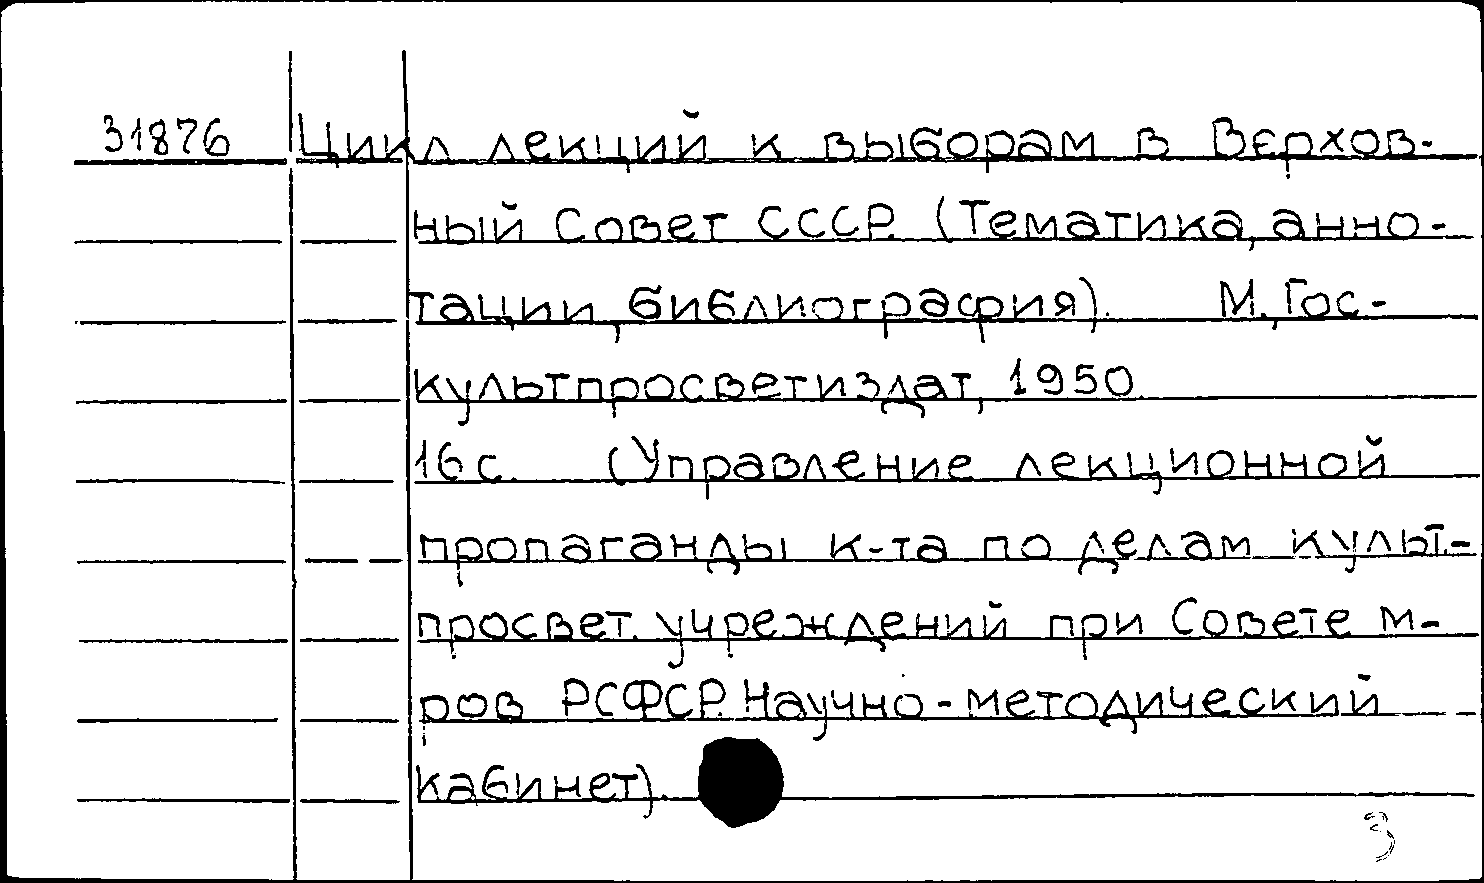 31876 Цикл лекций к выборам в Верхов-
ный Совет СССР. (Тематика, анно-
тации, библиография). М., Гос-
культпросветиздат, 1950.
16 с. (Управление лекционной
пропаганды к-та по делам культ.-
просвет. учреждений при Совете м-
ров РСФСР. Научно-методический
кабинет).
3